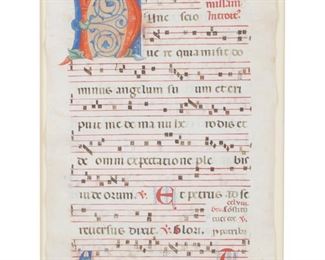 missam
Introit
Nunc scio
ve re quia misit do
minus angelum su um et eri
puit me de manu he rodis et
de omni expectatione ple bis
iudeorum. V. Et petrus ad se
reversus dixit. V. Glori.